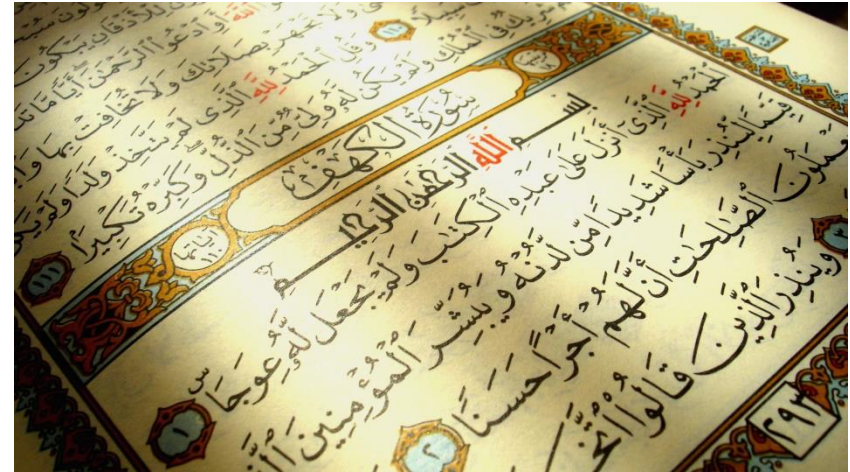 لِلْأَذْقَانِ يَبْكُونَ
ٱللَّهَ أَوِ ٱدْعُوا۟ ٱلرَّحْمَٰنَ أَيًّا مَا
وَلَا تَجْهَرْ بِصَلَاتِكَ وَلَا تُخَافِتْ بِهَا
سَبِيلًا ١١٠ وَقُلِ ٱلْحَمْدُ لِلَّهِ ٱلَّذِى لَمْ يَتَّخِذْ وَلَدًا وَلَمْ يَكُن
شَرِيكٌ فِى ٱلْمُلْكِ وَلَمْ يَكُن لَّهُۥ وَلِىٌّ مِّنَ ٱلذُّلِّ وَكَبِّرْهُ تَكْبِيرًا ١١١
سُورَةُ ٱلْكَهْفِ
بِسْمِ ٱللَّهِ ٱلرَّحْمَٰنِ ٱلرَّحِيمِ
ٱلْحَمْدُ لِلَّهِ ٱلَّذِىٓ أَنزَلَ عَلَىٰ عَبْدِهِ ٱلْكِتَٰبَ وَلَمْ يَجْعَل لَّهُۥ عِوَجَا ۜ ١
قَيِّمًا لِّيُنذِرَ بَأْسًا شَدِيدًا مِّن لَّدُنْهُ وَيُبَشِّرَ ٱلْمُؤْمِنِينَ
يَعْمَلُونَ ٱلصَّٰلِحَٰتِ أَنَّ لَهُمْ أَجْرًا حَسَنًا ٢
٣ وَيُنذِرَ ٱلَّذِينَ قَالُوا۟
٢٩٣